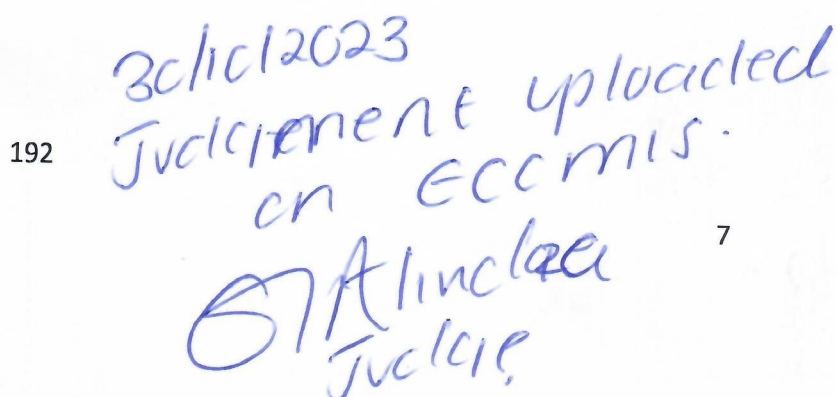 30/10/2023
Judgement uploaded
192
on ECCMIS.
7
GAlindaa
Judge